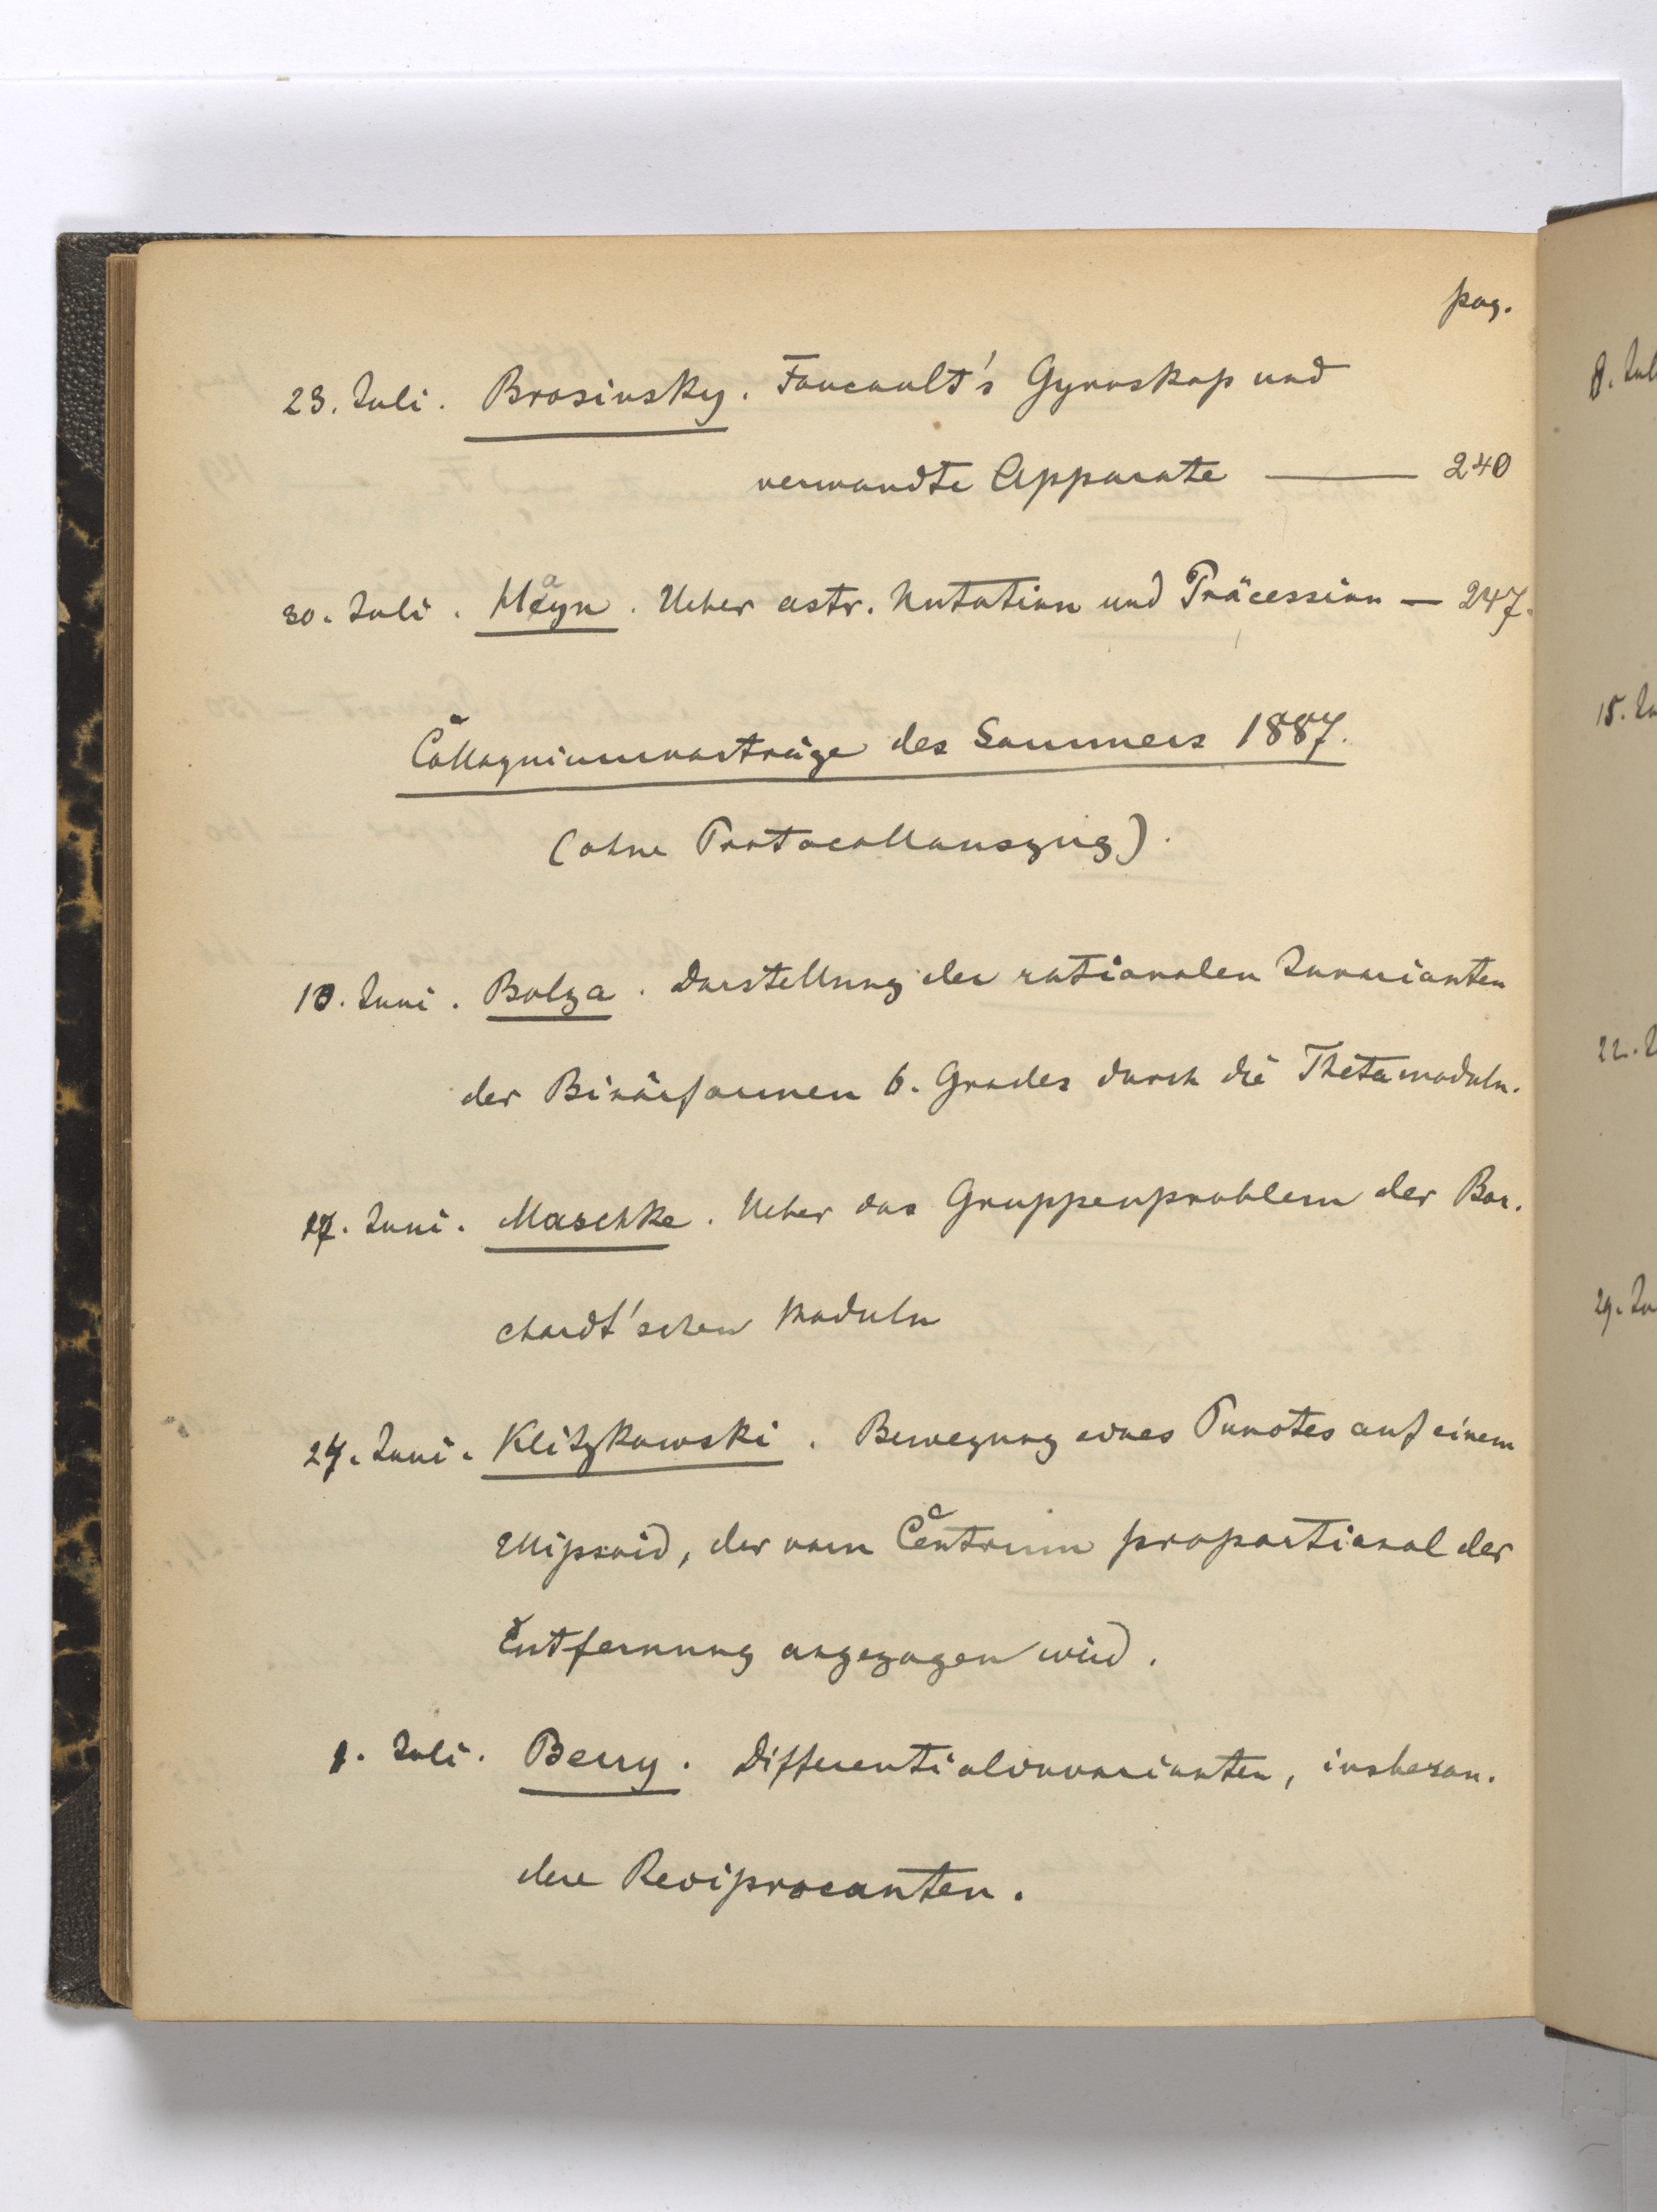 pag.
23. Juli. Brosinsky. Foucault's Gyroskop und
verwandte Apparate — 240
30. Juli. Mayn. Ueber astr. Nutation und Präcession — 247.
Colloquiumvorträge des Sommers 1887.
(ohne Protocollauszug).
10. Juni. Bolza. Darstellung der rationalen Invarianten
der Binärformen 6. Grades durch die Thetamoduln.
17. Juni. Maschke. Ueber das Gruppenproblem der Bor-
chardt'schen Moduln
24. Juni. Klitzkowski. Bewegung eines Punctes auf einem
Ellipsoid, der vom Centrum proportional der
Entfernung angezogen wird.
1. Juli. Berry. Differentialinvarianten, insbeson-
dere Reciprocanten.
8. Jul
15. Ju
22. J
29. Ju